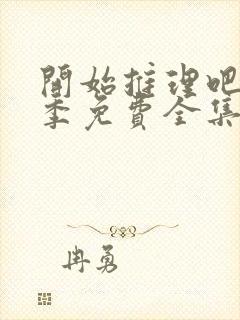 開始推理吧
季免費全集
冉勇